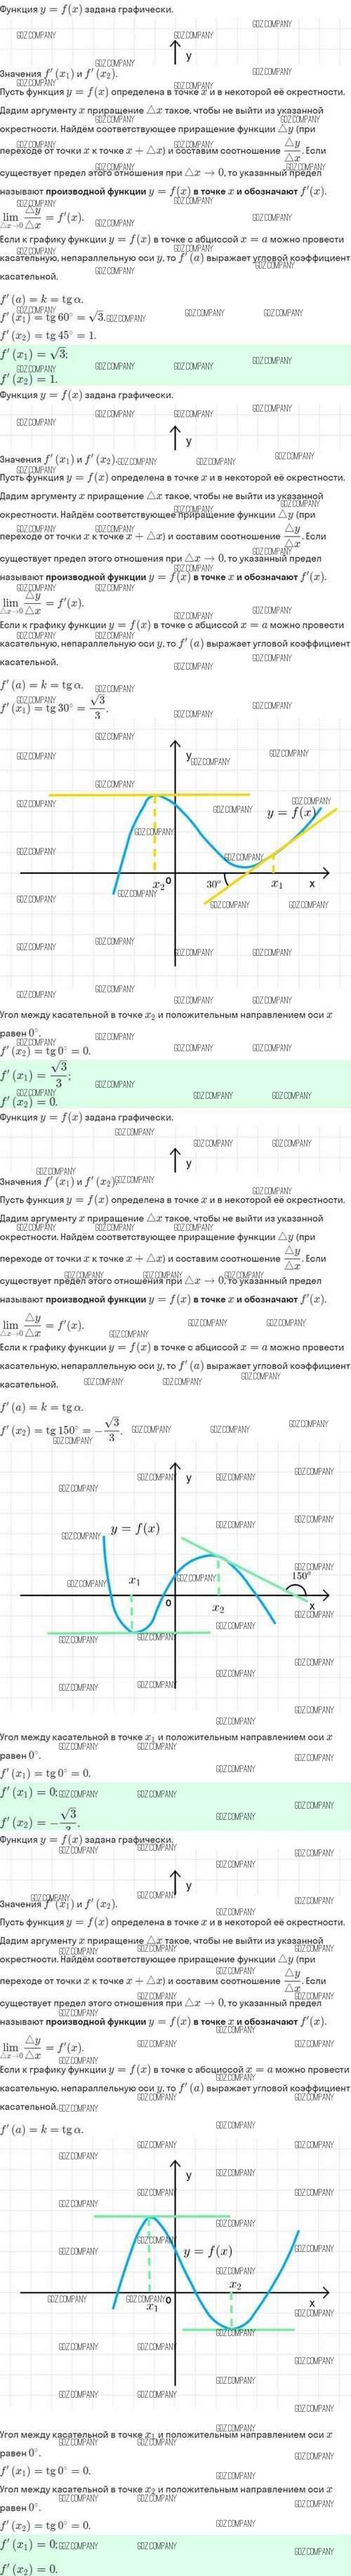 Функция y = f(x) задана графически.
y
Значения f′(x₁) и f′(x₂).
Пусть функция y = f(x) определена в точке x и в некоторой её окрестности.
Дадим аргументу x приращение △x такое, чтобы не выйти из указанной
окрестности. Найдём соответствующее приращение функции △y (при
переходе от точки x к точке x + △x) и составим соотношение △y/△x. Если
существует предел этого отношения при △x → 0, то указанный предел
называют производной функции y = f(x) в точке x и обозначают f′(x).
lim △x→0 △y/△x = f′(x).
Если к графику функции y = f(x) в точке с абсциссой x = a можно провести
касательную, непараллельную оси y, то f′(a) выражает угловой коэффициент
касательной.
f′(a) = k = tg α.
f′(x₁) = tg 60° = √3.
f′(x₂) = tg 45° = 1.
f′(x₁) = √3;
f′(x₂) = 1.
Функция y = f(x) задана графически.
y
Значения f′(x₁) и f′(x₂).
Пусть функция y = f(x) определена в точке x и в некоторой её окрестности.
Дадим аргументу x приращение △x такое, чтобы не выйти из указанной
окрестности. Найдём соответствующее приращение функции △y (при
переходе от точки x к точке x + △x) и составим соотношение △y/△x. Если
существует предел этого отношения при △x → 0, то указанный предел
называют производной функции y = f(x) в точке x и обозначают f′(x).
lim △x→0 △y/△x = f′(x).
Если к графику функции y = f(x) в точке с абсциссой x = a можно провести
касательную, непараллельную оси y, то f′(a) выражает угловой коэффициент
касательной.
f′(a) = k = tg α.
f′(x₁) = tg 30° = √3/3.
y
y = f(x)
x₂ 0 30° x₁ x
Угол между касательной в точке x₂ и положительным направлением оси x
равен 0°.
f′(x₂) = tg 0° = 0.
f′(x₁) = √3/3;
f′(x₂) = 0.
Функция y = f(x) задана графически.
y
Значения f′(x₁) и f′(x₂).
Пусть функция y = f(x) определена в точке x и в некоторой её окрестности.
Дадим аргументу x приращение △x такое, чтобы не выйти из указанной
окрестности. Найдём соответствующее приращение функции △y (при
переходе от точки x к точке x + △x) и составим соотношение △y/△x. Если
существует предел этого отношения при △x → 0, то указанный предел
называют производной функции y = f(x) в точке x и обозначают f′(x).
lim △x→0 △y/△x = f′(x).
Если к графику функции y = f(x) в точке с абсциссой x = a можно провести
касательную, непараллельную оси y, то f′(a) выражает угловой коэффициент
касательной.
f′(a) = k = tg α.
f′(x₂) = tg 150° = −√3/3.
y
y = f(x)
x₁ 150°
0 x₂ x
Угол между касательной в точке x₁ и положительным направлением оси x
равен 0°.
f′(x₁) = tg 0° = 0.
f′(x₁) = 0;
f′(x₂) = −√3/3.
Функция y = f(x) задана графически.
y
Значения f′(x₁) и f′(x₂).
Пусть функция y = f(x) определена в точке x и в некоторой её окрестности.
Дадим аргументу x приращение △x такое, чтобы не выйти из указанной
окрестности. Найдём соответствующее приращение функции △y (при
переходе от точки x к точке x + △x) и составим соотношение △y/△x. Если
существует предел этого отношения при △x → 0, то указанный предел
называют производной функции y = f(x) в точке x и обозначают f′(x).
lim △x→0 △y/△x = f′(x).
Если к графику функции y = f(x) в точке с абсциссой x = a можно провести
касательную, непараллельную оси y, то f′(a) выражает угловой коэффициент
касательной.
f′(a) = k = tg α.
y
y = f(x)
x₂
x₁ 0 x
Угол между касательной в точке x₁ и положительным направлением оси x
равен 0°.
f′(x₁) = tg 0° = 0.
Угол между касательной в точке x₂ и положительным направлением оси x
равен 0°.
f′(x₂) = tg 0° = 0.
f′(x₁) = 0;
f′(x₂) = 0.
GDZ.COMPANY